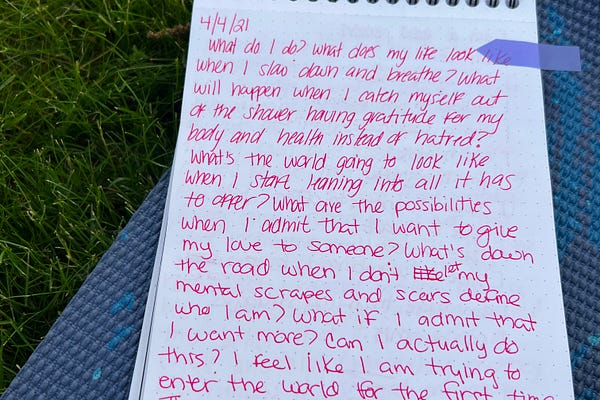 4/4/21
What do I do? What does my life look like
when I slow down and breathe? What
will happen when I catch myself out
of the shower having gratitude for my
body and health instead of hatred?
What's the world going to look like
when I start leaning into all it has
to offer? What are the possibilities
when I admit that I want to give
my love to someone? What's down
the road when I don't let my
mental scrapes and scars define
who I am? What if I admit that
I want more? Can I actually do
this? I feel like I am trying to
enter the world for the first time